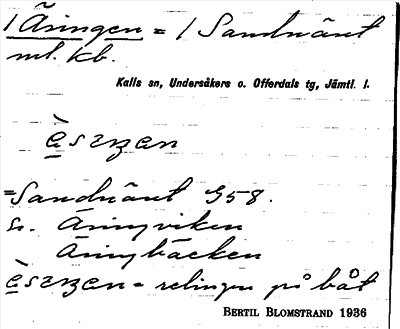 / Äringen = / Sandnäset
ml. kb.
Kalls sn, Undersåkers o. Offerdals tg, Jämtl. l.
= Sandnäset 958.
Äringviken
Äringbäcken
= relingen på båt
BERTIL BLOMSTRAND 1936